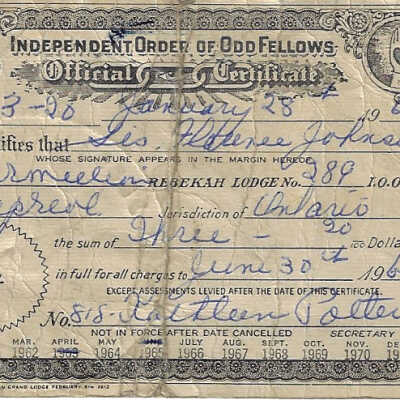 INDEPENDENT ORDER OF ODD FELLOWS
Official Certificate
3-20 January 28th 196
ifies that Sis. Florence Johns
WHOSE SIGNATURE APPEARS IN THE MARGIN HEREOF
rmilion REBEKAH LODGE No. 289 I.O.O
apreol Jurisdiction of Ontario
the sum of Three - 20/100 Dolla
in full for all charges to June 30th 196
EXCEPT ASSESSMENTS LEVIED AFTER THE DATE OF THIS CERTIFICATE.
No. 818 Kathleen Potte
NOT IN FORCE AFTER DATE CANCELLED SECRETARY
MAR. APRIL MAY JUNE JULY AUG. SEPT. OCT. NOV. DE
1962 1963 1964 1965 1966 1967 1968 1969 1970 1
GRAND LODGE FEBRUARY 8TH 1912